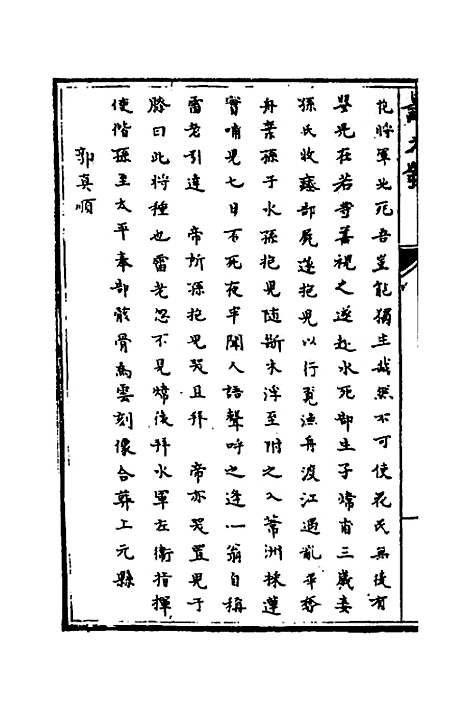 花將軍必死吾豈能獨生哉然不可使花氏無後有
嬰兒在若等善視之遂赴水死部生子煒甫三歲妾
孫氏收瘞部屍遂抱兒以行覓漁舟渡江遇亂軍奪
舟棄孫于水孫抱兒隨斷木浮至附之入葦洲採蓮
實哺兒七日不死夜半聞人語聲呼之逢一翁自稱
雷老引達　帝所孫抱兒哭且拜　帝亦哭置兒于
膝曰此將種也雷老忽不見煒後拜水軍左衛指揮
使偕孫至太平奉部骸骨為雲刻像合葬上元縣
郭真順